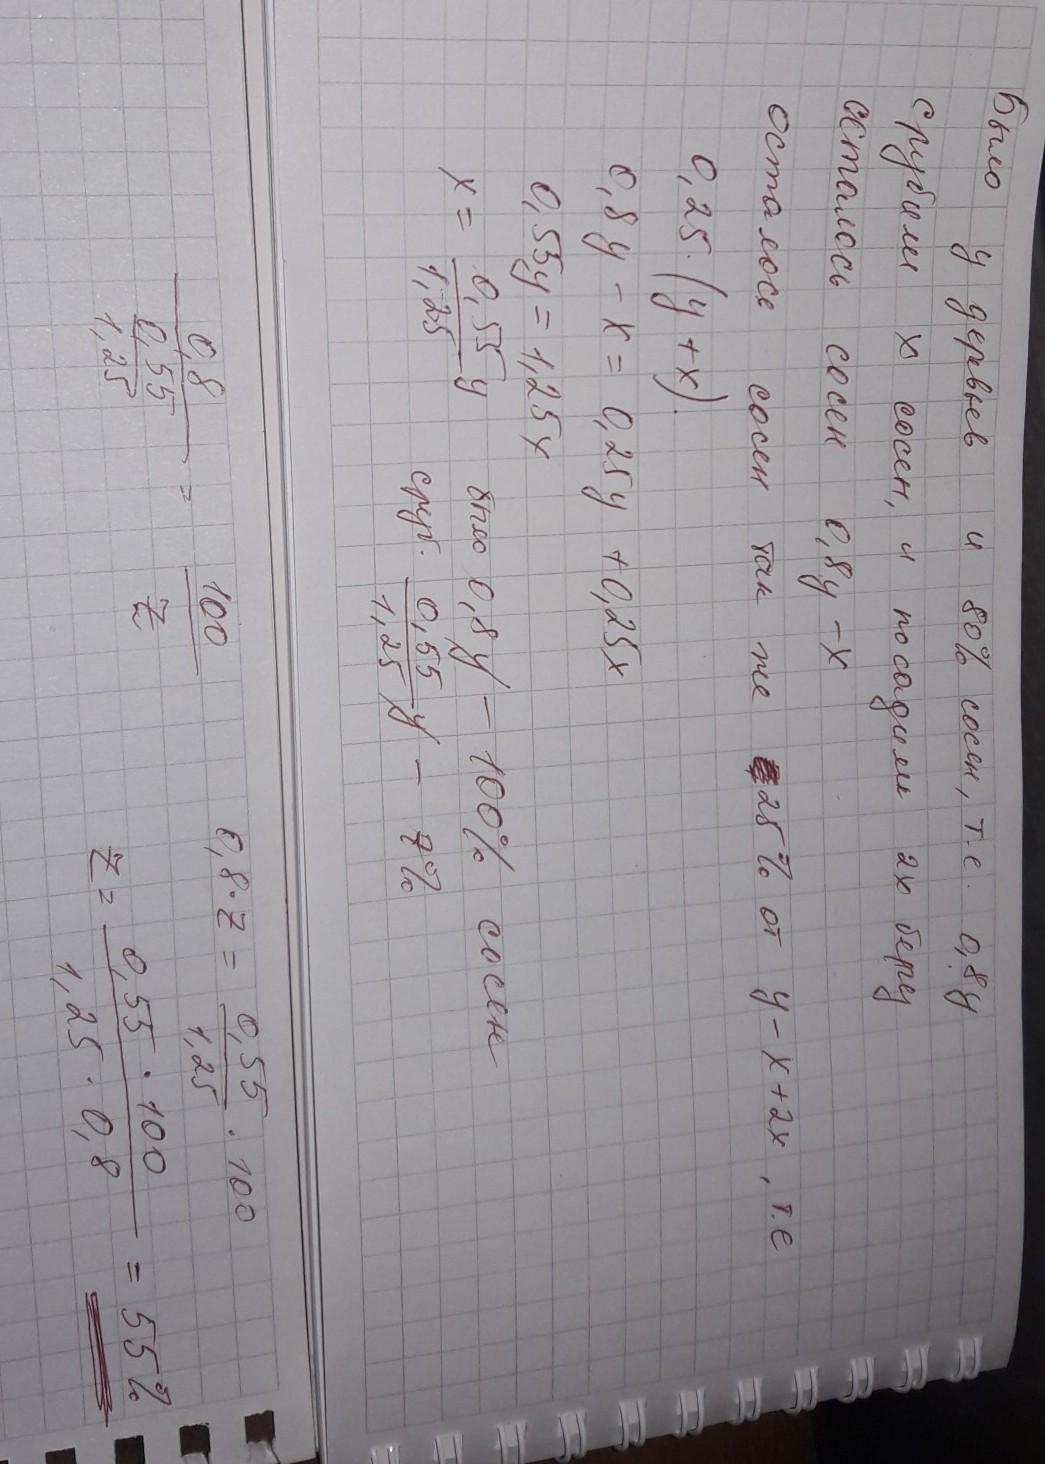 Было y деревьев и 80% сосен, т.е. 0,8y
срубили x сосен, и посадили 2x берез
осталось сосен 0,8y - x
осталось сосен так же 25% от y - x + 2x, т.е
0,25·(y + x).
0,8y - x = 0,25y + 0,25x
0,55y = 1,25x
x = 0,55/1,25 y
было 0,8y - 100% сосен
сруб. 0,55/1,25 y - z%
0,8/(0,55/1,25) = 100/z
0,8·z = 0,55/1,25 · 100
z = (0,55·100)/(1,25·0,8) = 55%